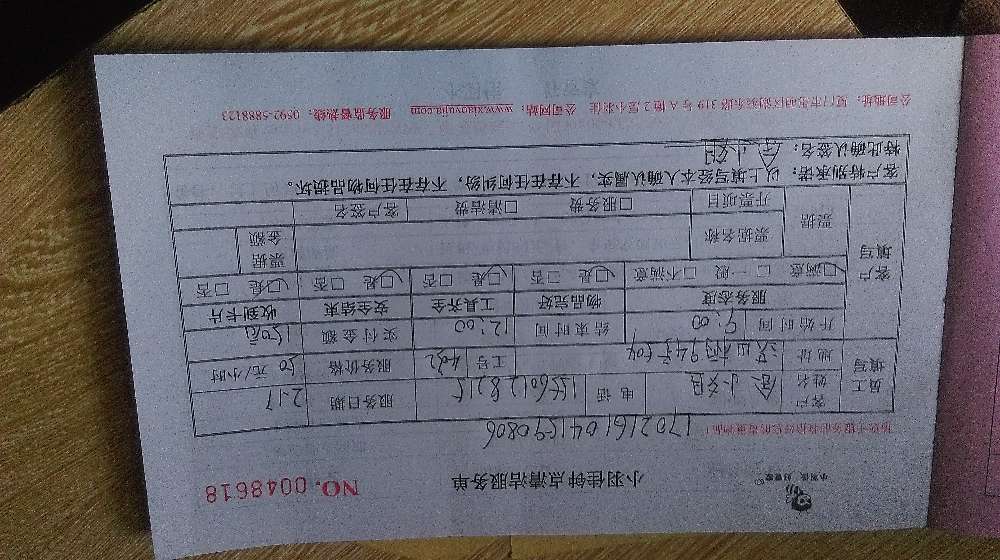 小羽佳 好管家
小羽佳钟点清洁服务单 NO. 0048618
1702161041590806
员工填写 客户姓名 小姐 电话 服务日期 2.17
地址 工号 服务价格 50 元/小时
开始时间 9:00 结束时间 12:00 实付金额 150元
客户填写 服务态度 物品完好 工具齐全 安全结束 收到卡片
□满意 □一般 □不满意 □是 □否 □是 □否 □是 □否 □是 □否
票据 票据名称 票据金额
开票项目 □服务费 □清洁费 客户签名
客户特别承诺：以上填写经本人确认属实，不存在任何纠纷，不存在任何物品损坏。
特此确认签名： 小姐
公司地址：厦门市 319号A幢2层小羽佳 公司网站：www.xiaoyujia.com 服务监督热线：0592-5888123